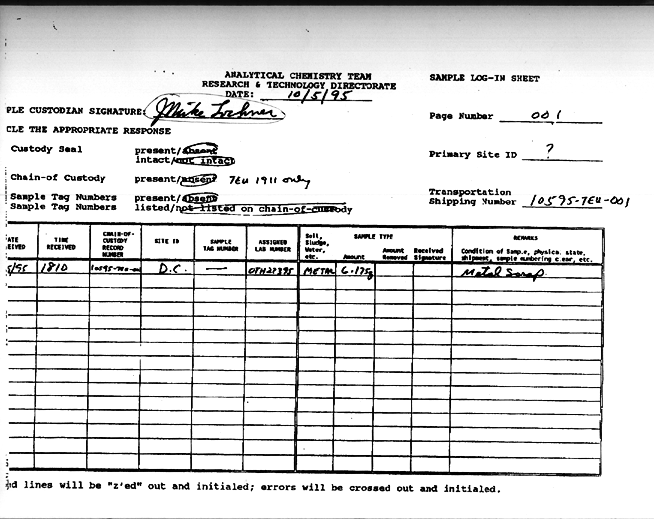 ANALYTICAL CHEMISTRY TEAM
RESEARCH & TECHNOLOGY DIRECTORATE
DATE: 10/5/95
SAMPLE LOG-IN SHEET
PLE CUSTODIAN SIGNATURE: Mike
Page Number 001
CLE THE APPROPRIATE RESPONSE
Custody Seal present/absent
intact/not intact
Primary Site ID ?
Chain-of Custody present/absent TEU 1911 only
Sample Tag Numbers present/absent
Sample Tag Numbers listed/not listed on chain-of-custody
Transportation
Shipping Number 10595-TEU-001
ATE RECEIVED TIME RECEIVED CHAIN-OF-CUSTODY RECORD NUMBER SITE ID SAMPLE TAG NUMBER ASSIGNED LAB NUMBER Soil, Sludge, Water, etc. SAMPLE TYPE Amount Amount Removed Received Signature REMARKS Condition of sample, physical state, shipment, sample numbering clear, etc.
5/95 1810 10595-TEU-001 D.C. — METAL 6.175g Metal Scrap
nd lines will be "z'ed" out and initialed; errors will be crossed out and initialed.